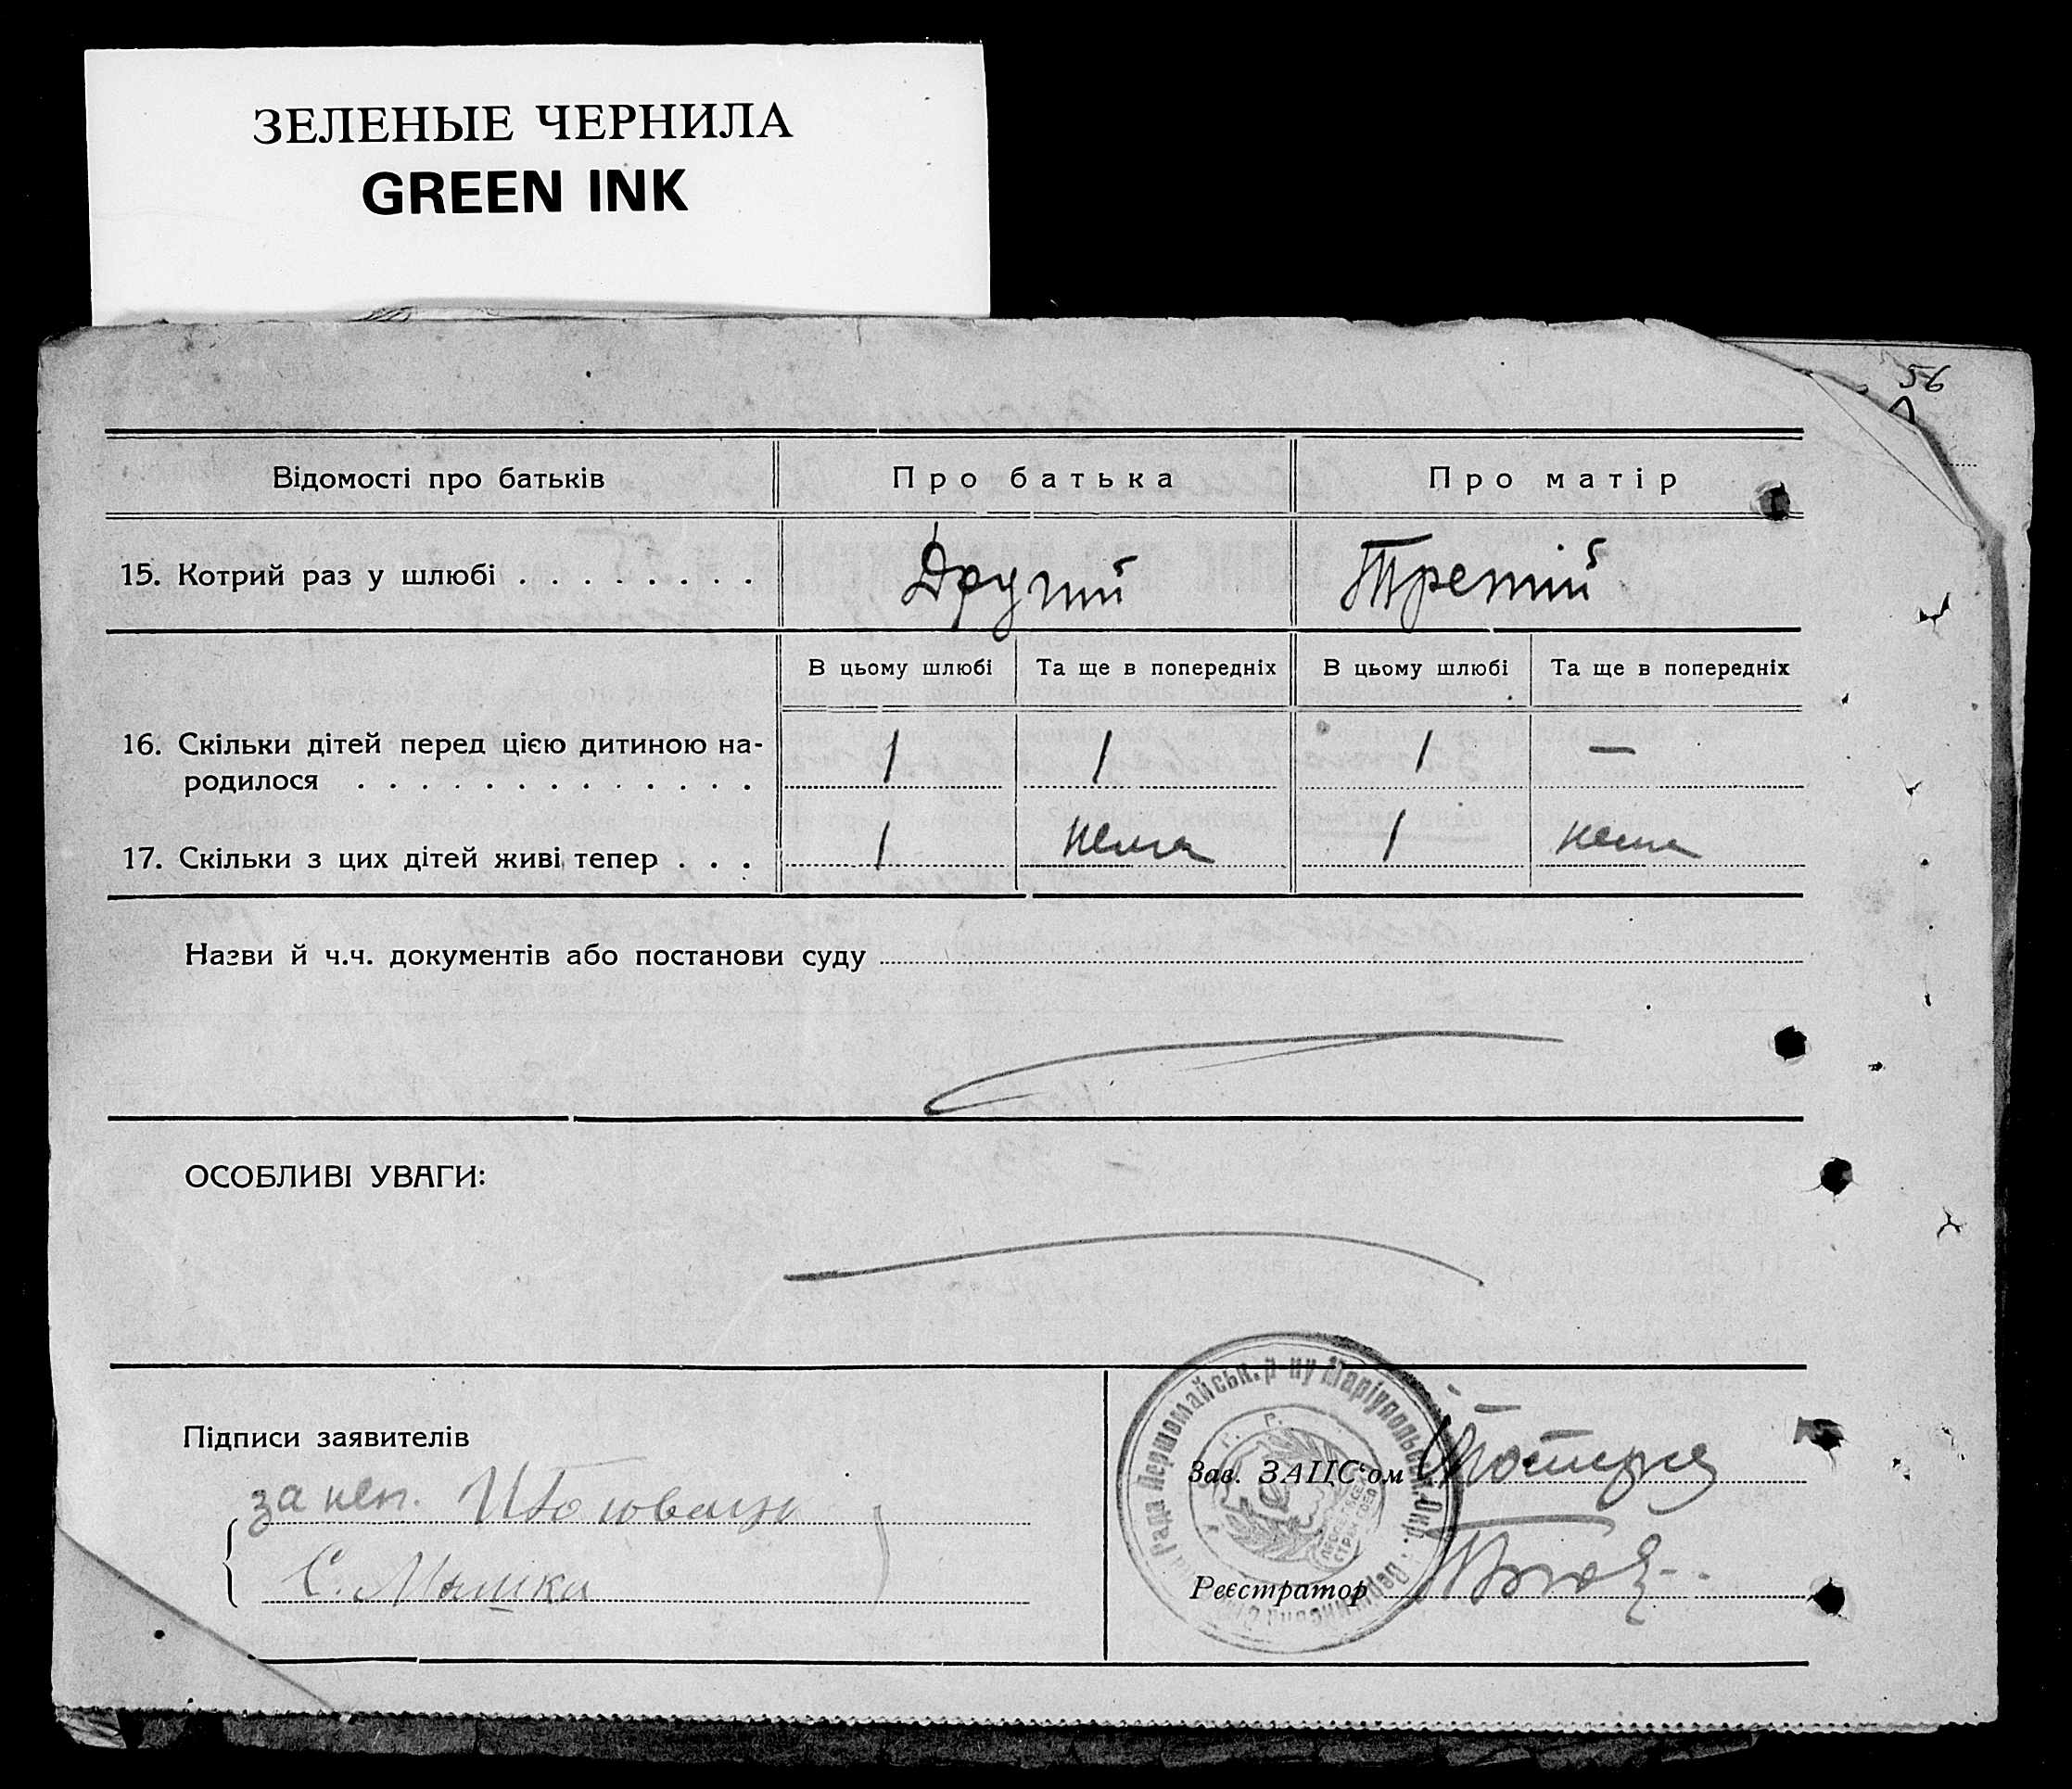 ЗЕЛЕНЫЕ ЧЕРНИЛА
GREEN INK
56
Відомості про батьків Про батька Про матір
15. Котрий раз у шлюбі . . . . . . . . . Другий Третій
В цьому шлюбі Та ще в попередніх В цьому шлюбі Та ще в попередніх
16. Скільки дітей перед цією дитиною на-
родилося . . . . . . . . . . . . . 1 1 1 —
17. Скільки з цих дітей живі тепер . . . 1 нема 1 нема
Назви й ч.ч. документів або постанови суду
ОСОБЛИВІ УВАГИ:
Рада Першомайськ. р-ну Маріупольськ. Окр.
Підписи заявителів
Зав. ЗАЦС'ом
за неп.
С. Мышка
Реєстратор